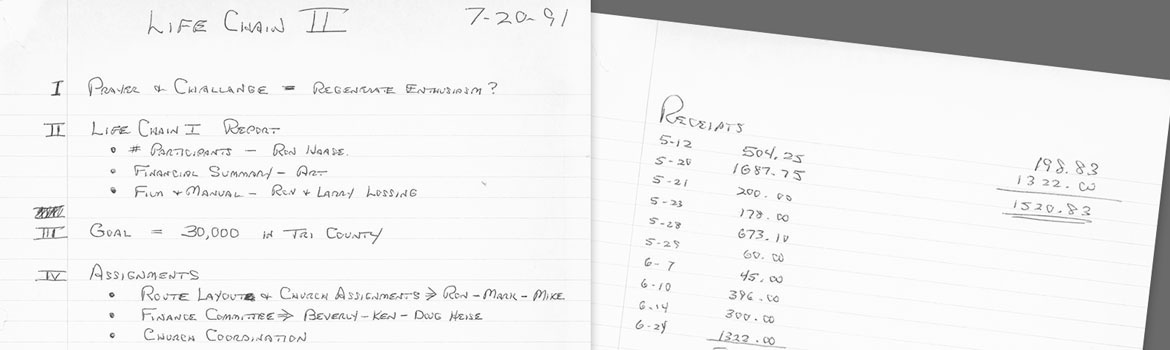 LIFE CHAIN II 7-20-91
I PRAYER & CHALLANGE = REGENERATE ENTHUSIASM?
II LIFE CHAIN I REPORT
• # PARTICIPANTS – RON HAASE.
• FINANCIAL SUMMARY – ART
• FILM & MANUAL – RON & LARRY LOSSING
III GOAL = 30,000 IN TRI COUNTY
IV ASSIGNMENTS
• ROUTE LAYOUT & CHURCH ASSIGNMENTS ⇒ RON – MARK – MIKE
• FINANCE COMMITTEE ⇒ BEVERLY – KEN – DOUG HEISE
• CHURCH COORDINATION
RECEIPTS
5-12 504.25
5-20 1687.75
5-21 200.00
5-23 178.00
5-28 673.10
5-29 60.00
6-7 45.00
6-10 396.00
6-14 300.00
6-24 1322.00
198.83
1322.00
1520.83